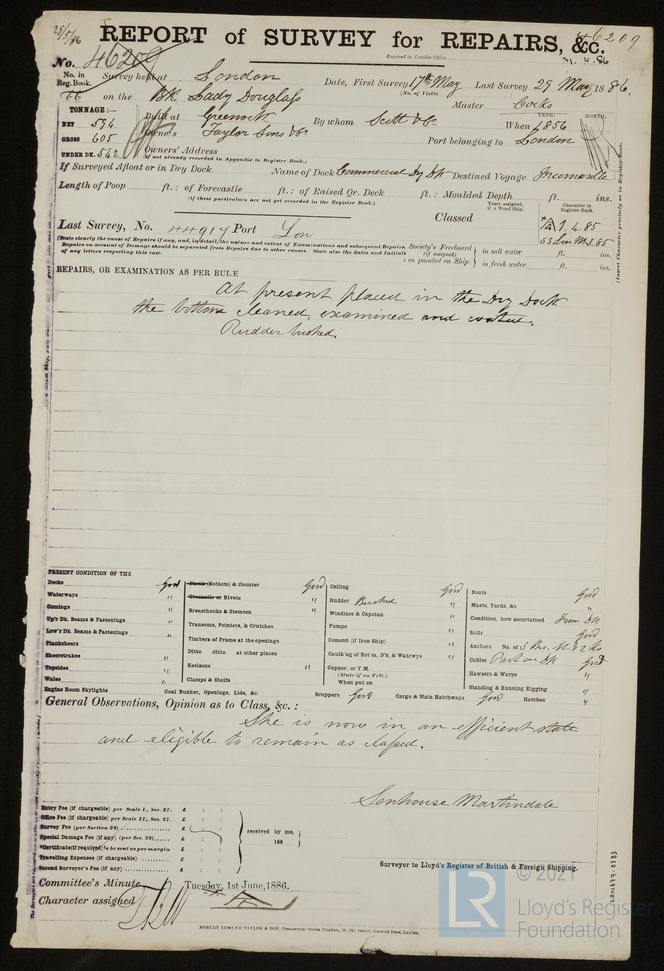 25/5/86
REPORT of SURVEY for REPAIRS, &c.
46209
No. 46209
Received in London Office,
No. in Reg. Book.
Survey held at London
Date, First Survey 17th May Last Survey 29 May 1886.
(No. of Visits)
66 on the Bk Lady Douglass
Master Cocks
TONNAGE:—
Built at Greenock
By whom Scott & Co
When 1856
YEAR. MONTH.
NET 594
GROSS 605
UNDER DK. 542
Owners Taylor Sons & Co
Port belonging to London
Owners' Address
(if not already recorded in Appendix to Register Book.)
If Surveyed Afloat or in Dry Dock
Name of Dock Commercial Dry Dk Destined Voyage
Length of Poop ft.: of Forecastle ft.: of Raised Qr. Deck ft.: Moulded Depth ft. ins.
(if these particulars are not yet recorded in the Register Book.)
Years assigned, if a Wood Ship.
Character in Register Book.
Last Survey, No. 44917 Port Lon
Classed
A 1. 4.85
SS Lon 3.85
(State clearly the cause of Repairs if any, and, in detail, the nature and extent of Examinations and subsequent Repairs.
Repairs on account of Damage should be separated from Repairs due to other causes. State also the dates and Initials
of any letters respecting this case.
Society's Freeboard (if assigned) as painted on Ship
in salt water ft. ins.
in fresh water ft. ins.
(Insert Character precisely as in Register Book.
REPAIRS, OR EXAMINATION AS PER RULE
At present placed in the Dry Dock
the bottom cleaned, examined and coated.
Rudder bushed.
PRESENT CONDITION OF THE
Decks Good
Waterways "
Comings "
Up'r Dk. Beams & Fastenings "
Low'r Dk. Beams & Fastenings "
Planksheers
Sheerstrakes "
Topsides "
Wales "
Engine Room Skylights
Plank (Bottom) & Counter Good
Treenails or Rivets "
Breasthooks & Stemson "
Transoms, Pointers, & Crutches
Timbers of Frame at the openings
Ditto ditto at other places
Keelsons "
Clamps & Shelfs
Coal Bunker, Openings, Lids, &c.
Ceiling Good
Rudder Bushed "
Windlass & Capstan "
Pumps "
Cement (if Iron Ship) "
Caulk'ng of Bot'm, D'k, & Watrwys "
Copper, or Y.M.
(State if on Felt.)
When put on
Scuppers Good
Cargo & Main Hatchways Good
Boats Good
Masts, Yards, &c. "
Condition, how ascertained From Dk
Sails Good
Anchors No. of
Cables Part on Dk Good
Hawsers & Warps "
Standing & Running Rigging "
Hatches "
General Observations, Opinion as to Class, &c.:
She is now in an efficient state
and eligible to remain as classed.
Entry Fee (if chargeable) per Scale I., Sec. 27. £ : :
Office Fee (if chargeable) per Scale II., Sec. 27. £ : :
Survey Fee (per Section 28) £ : :
Special Damage Fee (if any) (per Sec. 28) £ : :
*Certificate (if required) to be sent as per margin
Travelling Expenses (if chargeable) £ : :
Second Surveyor's Fee (if any) £ : :
received by me,
188
Senhouse Martindale
Surveyor to Lloyd's Register of British & Foreign Shipping.
Committee's Minute
Tuesday, 1st June, 1886.
Character assigned
ROBERT EDMUND TAYLOR & SON, Commercial Steam Printers, 19, Old Street, Goswell Road, London.
LON677-0383
LR
© 2021
Lloyd's Register
Foundation